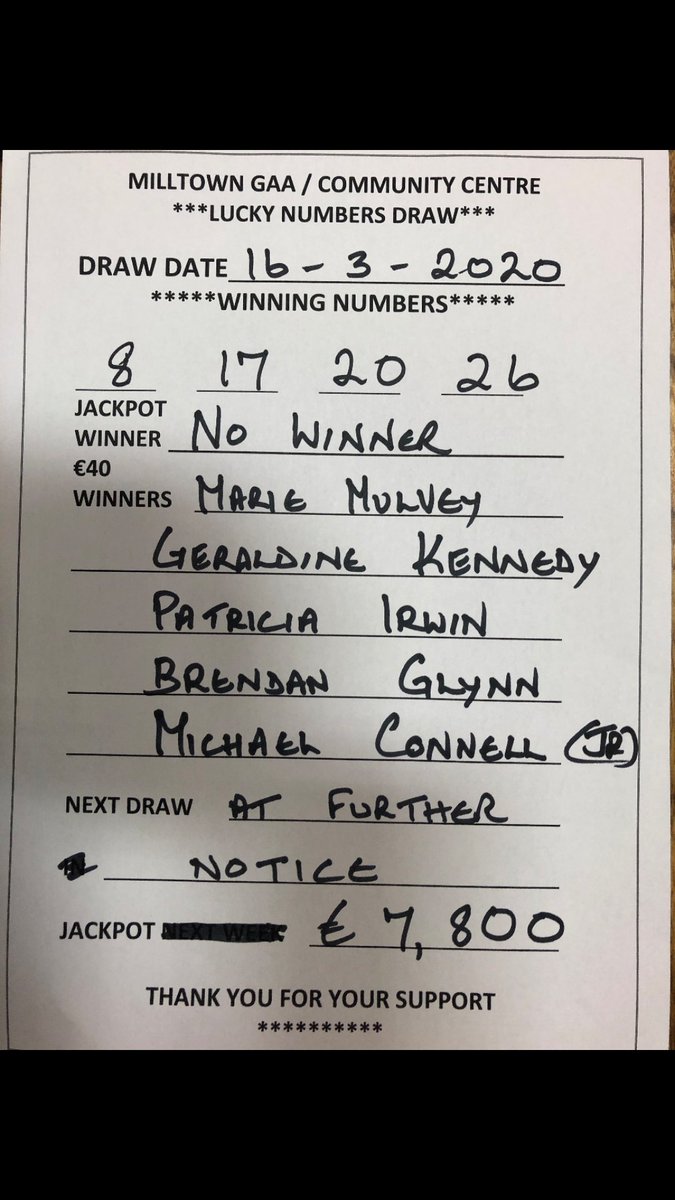 MILLTOWN GAA / COMMUNITY CENTRE
***LUCKY NUMBERS DRAW***
DRAW DATE 16-3-2020
*****WINNING NUMBERS*****
8 17 20 26
JACKPOT
WINNER NO WINNER
€40
WINNERS MARIE MULVEY
GERALDINE KENNEDY
PATRICIA IRWIN
BRENDAN GLYNN
MICHAEL CONNELL (JR)
NEXT DRAW AT FURTHER
NOTICE
JACKPOT NEXT WEEK € 7,800
THANK YOU FOR YOUR SUPPORT
**********